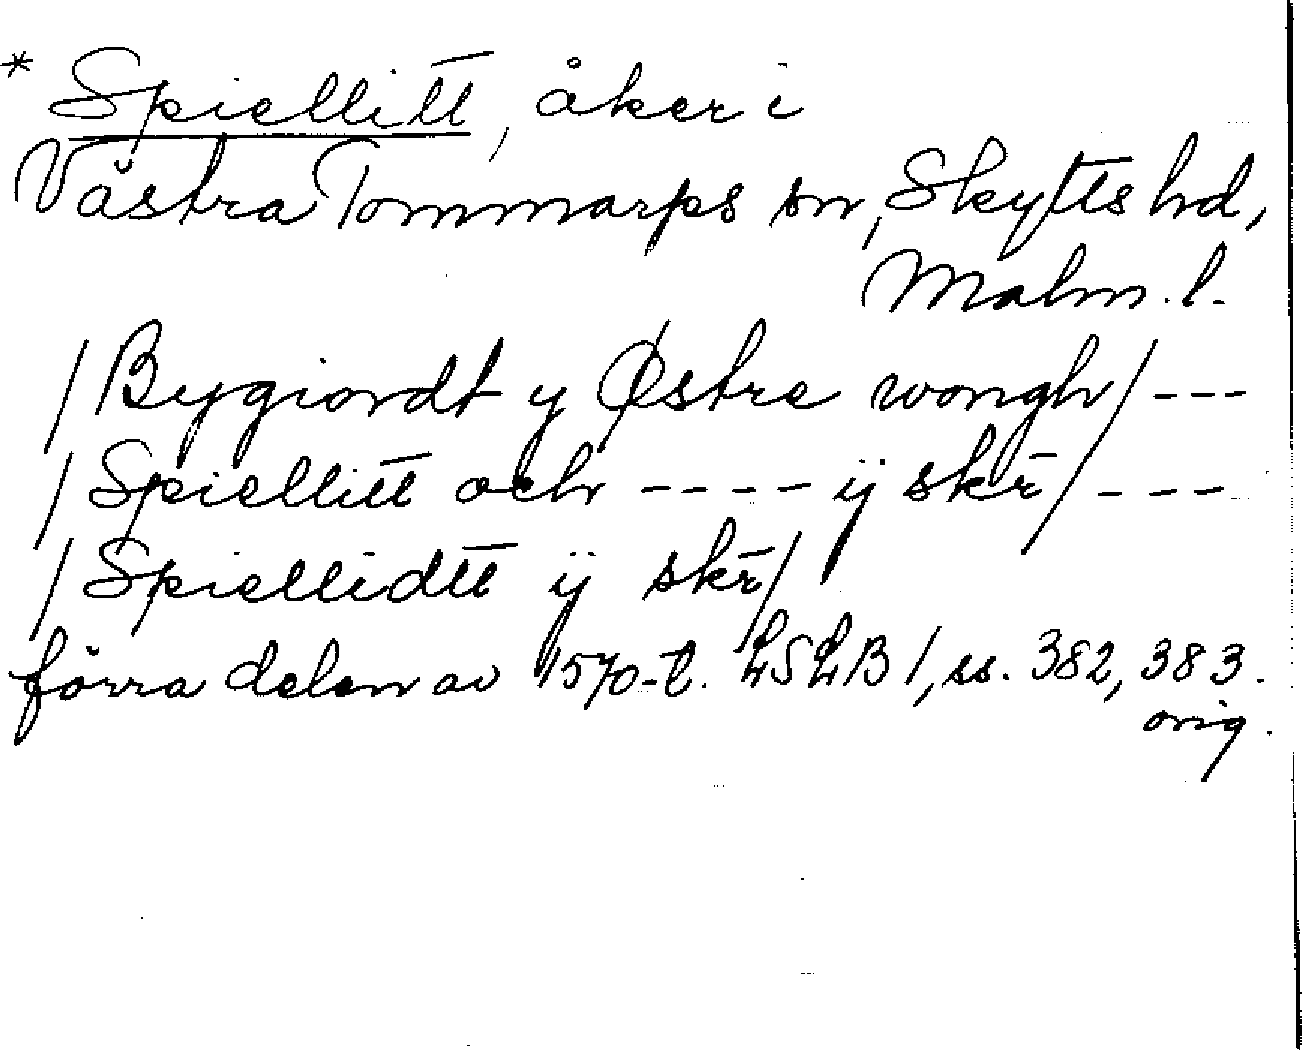 * Spiellitt, åker i
Västra Tommarps sn, Skytts hd,
Malm. l.
/Bygiordt y Østre wongh/ ---
/Spiellitt och ---- ij skr̄/ ---
/Spiellidtt ij skr̄/
förra delen av 1570-t. LSLB 1, ss. 382, 383.
orig.